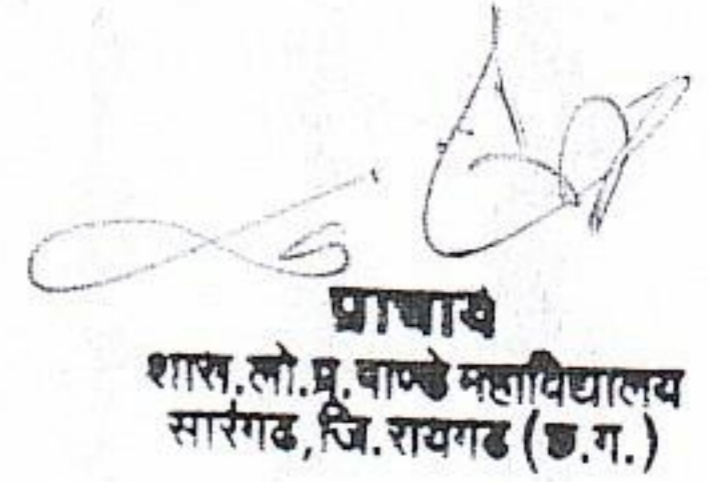 प्राचार्य
शास.लो.प्र.पाण्डे महाविद्यालय
सारंगढ,जि.रायगढ (छ.ग.)